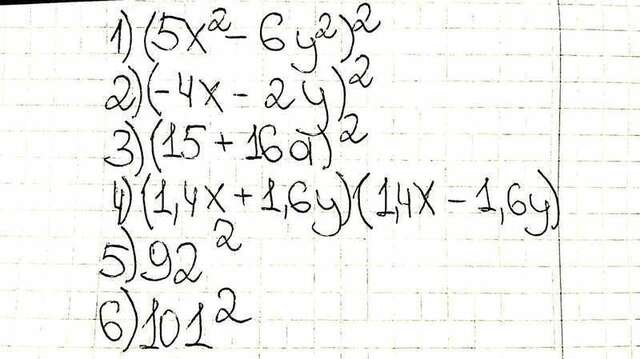 1) (5x² - 6y²)²
2) (-4x - 2y)²
3) (15 + 16a)²
4) (1,4x + 1,6y) (1,4x - 1,6y)
5) 92²
6) 101²